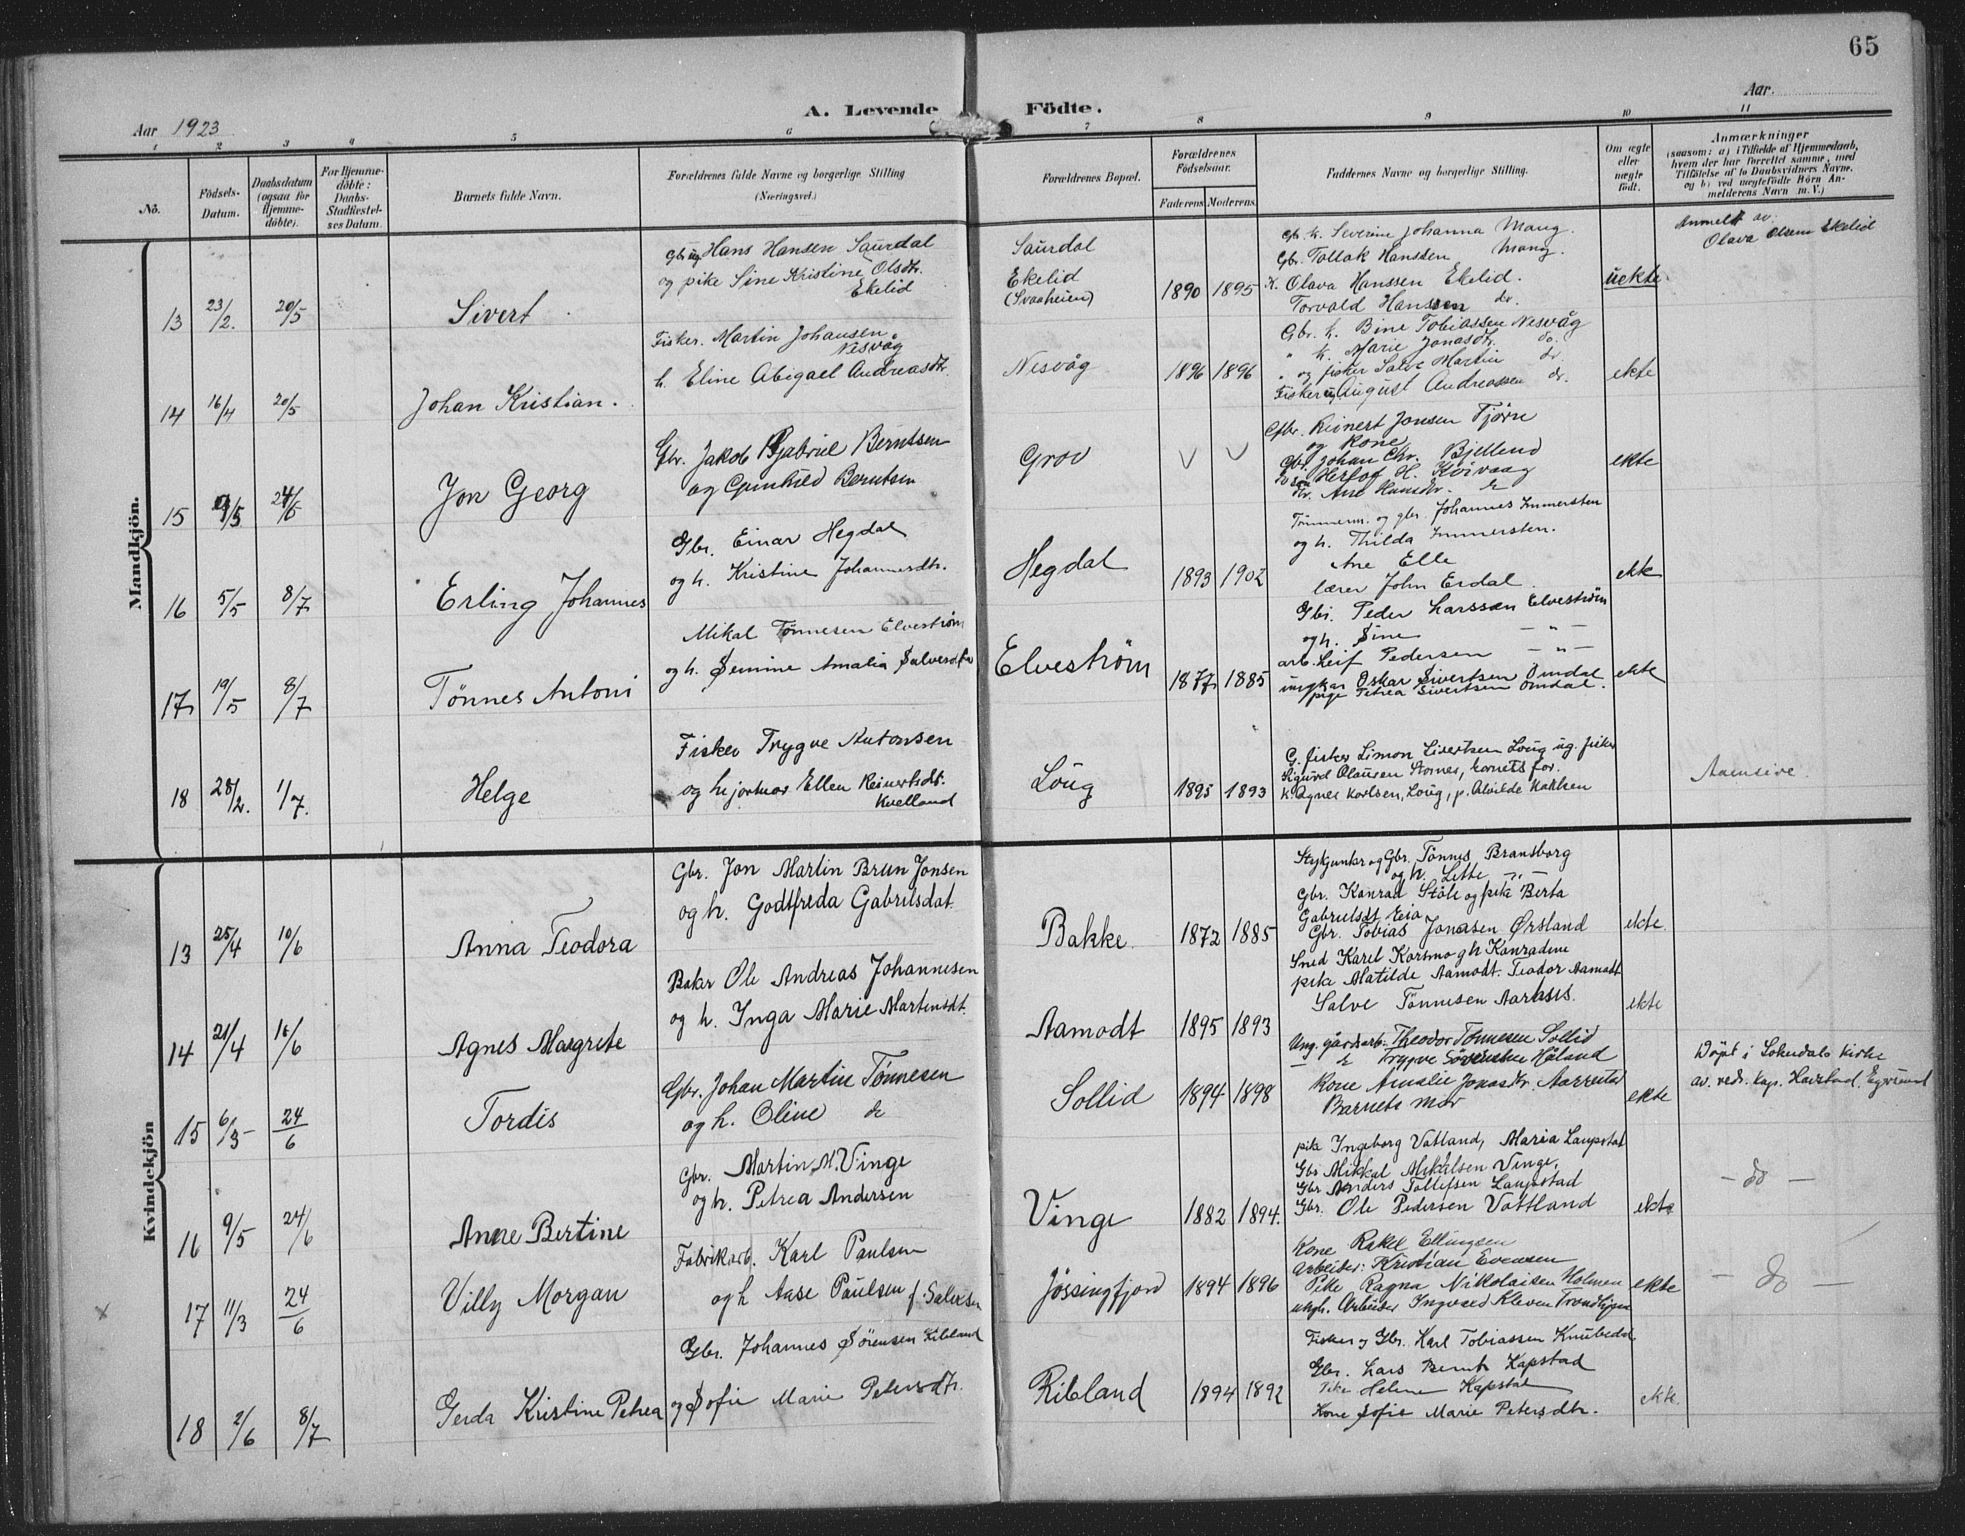 65
A. Levende Födte.
Aar 1923
Aar.
1 2 3 4 5 6 7 8 9 10 11
No.
Födsels-
Datum.
Daabsdatum
(ogsaa for
Hjemme-
döbte).
For Hjemme-
döbte:
Daabs-
Stadfæstel-
ses Datum.
Barnets fulde Navn.
Forældrenes fulde Navne og borgerlige Stilling
(Næringsvei.)
Forældrenes Bopæl.
Forældrenes
Födselsaar.
Faderens Moderens
Faddernes Navne og borgerlige Stilling.
Om ægte
eller
uægte
födt.
Anmærkninger
(saasom: a) i Tilfælde af Hjemmedaab,
hvem der har forrettet samme, med
Tilföielse af to Daabsvidners Navne,
og b) ved uægtefödte Börn An-
melderens Navn m. V.)
Mandkjön.
13 23/2. 20/5 Sivert
Gbr ug Hans Hansen Saurdal
og pike Sine Kristine Olsdtr.
Ekelid
Saurdal
Ekelid
(Svaaheien)
1890 1895
Gbr. h. Severine Johanna Mong.
Gbr. Tollak Hanssen Mong.
K. Olava Hanssen Ekelid.
Torvald Hanssen do.
uekte
Anmeldt av
Olava Olsen Ekelid
14 16/4 20/5 Johan Kristian.
Fisker. Martin Johansen
Nesvåg
h. Eline Abigael Andreasdtr.
Nesvåg
1896 1896
Gbr. h. Bine Tobiassen Nesvåg
" h. Marie Jonasdtr. do.
" og fisker Salve Martin do.
Fisker ug August Andreassen do.
ekte
15 9/5 24/6 Jon Georg
Gbr. Jakob Gabriel Berntsen
og Gunhild Berntsen
Grov
Gbr. Reinert Jonsen Tjörn
og Kone
Gbr. Johan Chr. Bjelland
Hertof H. Kvivaag
Ane Hansdtr.
ekte
16 5/5 8/7 Erling Johannes
Gbr. Einar Hegdal
og h. Kristine Johannesdtr.
Hegdal
1893 1902
Tömmerm. og gbr. Johannes Immersten
og h. Thilda Immersten.
Ane Elle
lærer John Erdal
ekte
17 19/5 8/7 Tönnes Antoni
Mikal Tönnesen Elveström
og h. Semine Amalia Salvesdtr
Elveström
1877 1885
Gbr. Peder Larssen Elveström
og h. Sine — " —
arb. Leif Pedersen — " —
ungkar Oskar Sivertsen Omdal
pige Petrea Sivertsen Omdal.
ekte
18 28/2. 1/7. Helge
Fisker Trygve Antonsen
og hjorhur Ellen Reinertsdtr.
Kvelland
Loug
1895 1893
G. fisker Simon Sivertsen Loug ug. fisker
Sigurd Olausen Stornes, barnets far.
k. Agnes Karlsen, Loug, p. Alvilde
Kvindekjön
13 25/4 10/6 Anna Teodora
Gbr. Jon Martin Brun Jonsen
og h. Godtfreda Gabrilsdat.
Bakke
1872 1885
og Gbr. Tönnes Bransborg
og h. Lette — " —
Gbr. Konrad Stöle og pike Berta
Gabrielsdt Eia
Gbr. Tobias Jonassen Örsland
ekte
14 21/4 16/6 Agnes Margrete
Baker Ole Andreas Johannesen
og h. Inga Marie Martinsdt.
Aamodt
1895 1893
Sned Karel Korsmo og h Konradine
pike Matilde Aamodt. Teodor Aamodt
Salve Tönnesen
ekte
15 6/3 24/6 Tordis
Gbr. Johan Martin Tönnesen
og h. Oline do
Sollid
1894 1898
Ung. gårdarb. Theodor Tönnesen Sollid
— " — Trygve Håland
Kone Amalie Jonasdtr. Aarrestad
Barnets mor
ekte
Döpt i Sokndals kirke
av. res. kap. Havstad, Egersund
16 9/5 24/6 Anne Bertine
Gbr. Martin M. Vinge
og h. Petrea Andersen
Vinge
1882 1894.
pike Ingeborg Vatland, Maria Laupstad
Gbr Mikkal Mikalsen Vinge,
Gbr Anders Tollefsen Laupstad
Gbr. Ole Pedersen Vattland
ekte
— do —
17 11/3 24/6 Villy Morgan
Fabrikarb. Karl Paulsen
og h Aase Paulsen f. Salvesen
Jössingfjord
1894 1896
Kone Rakel Ellingsen
Arbeider: Kristian Evensen
Pike Ragna Nikolaisen Holmen
ungk. Arbeider Ingvald Kleven Trondhjem
ekte
— do —
18 2/6 8/7 Gerda Kristine Petrea
Gbr. Johannes Sörensen Kibland
og Sofie Marie Petersdtr.
Kibland
1894 1892
Fisker og Gbr. Karl Tobiassen Knubedal
Gbr. Lars Bernt Kapstad
Pike Helene Kapstad
Kone Sofie Marie Petersdtr.
ekte.